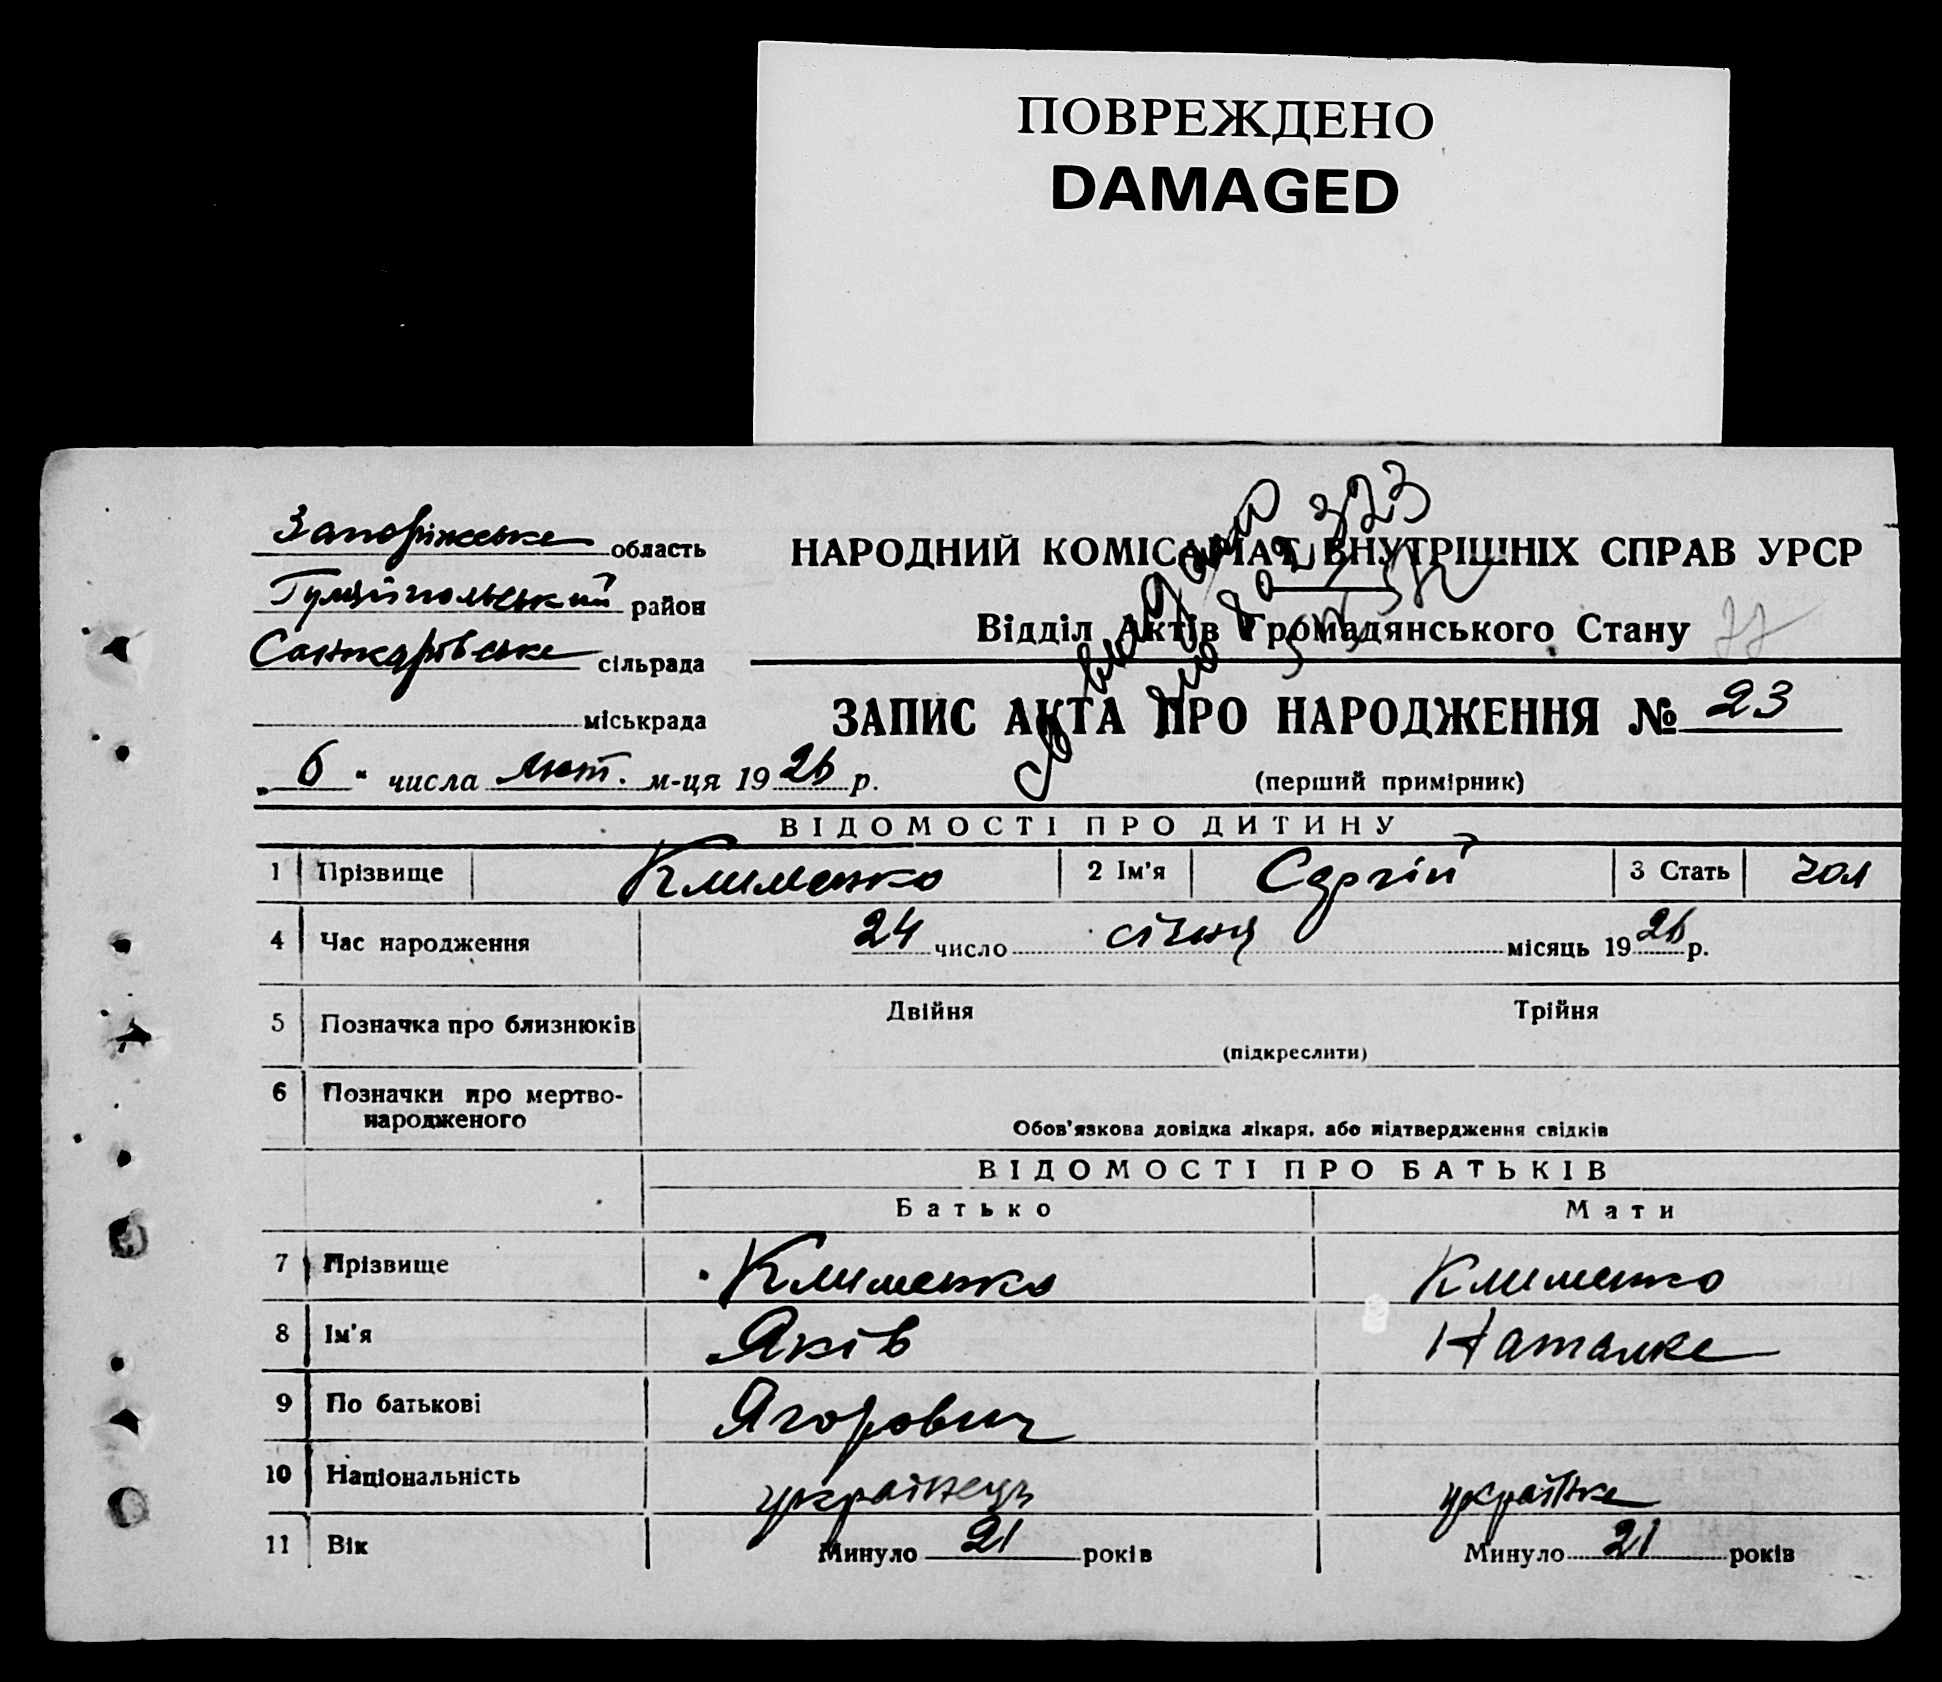 ПОВРЕЖДЕНО
DAMAGED
область
район
сільрада
міськрада
НАРОДНИЙ КОМІСАРІАТ ВНУТРІШНІХ СПРАВ УРСР
Відділ Актів Громадянського Стану 77
ЗАПИС АКТА ПРО НАРОДЖЕННЯ № 23
(перший примірник)
„ 6 “ числа лют. м-ця 19 26 р.
ВІДОМОСТІ ПРО ДИТИНУ
1 Прізвище Клименко 2 Ім'я Сергій 3 Стать чол
4 Час народження 24 число січня місяць 19 26 р.
5 Позначка про близнюків Двійня Трійня
(підкреслити)
6 Позначки про мертво-
народженого
Обов'язкова довідка лікаря, або підтвердження свідків
ВІДОМОСТІ ПРО БАТЬКІВ
Батько Мати
7 Прізвище Клименко Клименко
8 Ім'я Яків Наталка
9 По батькові Ягорович
10 Національність українець українка
11 Вік Минуло 21 років Минуло 21 років